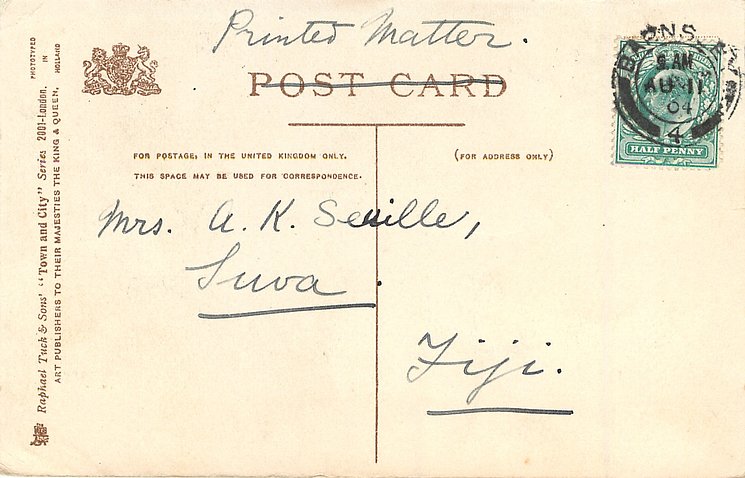 Printed Matter.
POST CARD
FOR POSTAGE, IN THE UNITED KINGDOM ONLY.
THIS SPACE MAY BE USED FOR CORRESPONDENCE.
(FOR ADDRESS ONLY)
Mrs. A. K. Seville,
Suva
Fiji.
9 AM
AU 11
04
4
HALF PENNY
Raphael Tuck & Sons' "Town and City" Series 2001-London.
ART PUBLISHERS TO THEIR MAJESTIES THE KING & QUEEN.
PHOTOTYPED
IN
HOLLAND